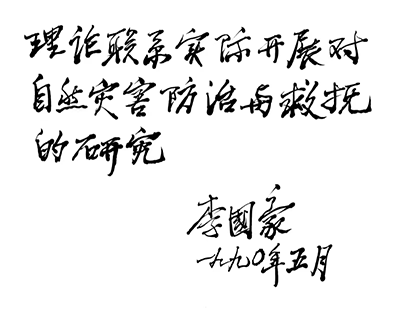 理论联系实际开展对
自然灾害防治与救抚
的研究
李國豪
一九九〇年五月